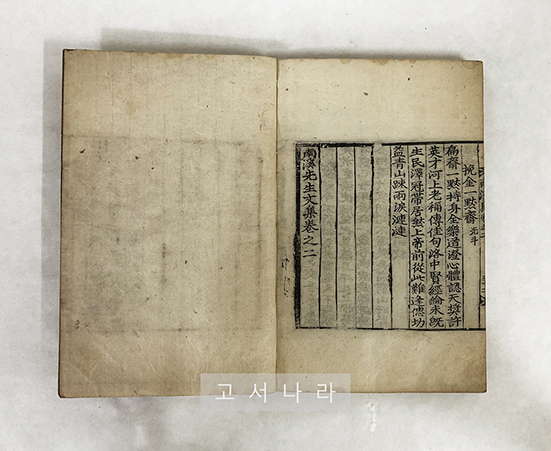 挽金一點齋 光斗
扁齋一點持身全樂道澄心體認天奬許
英才河上老稱傳佳句洛中賢經綸未旣
生民澤冠帶居上帝前從此難逢
益青山踈雨淚漣漣
南溪先生文集卷之二
고서나라